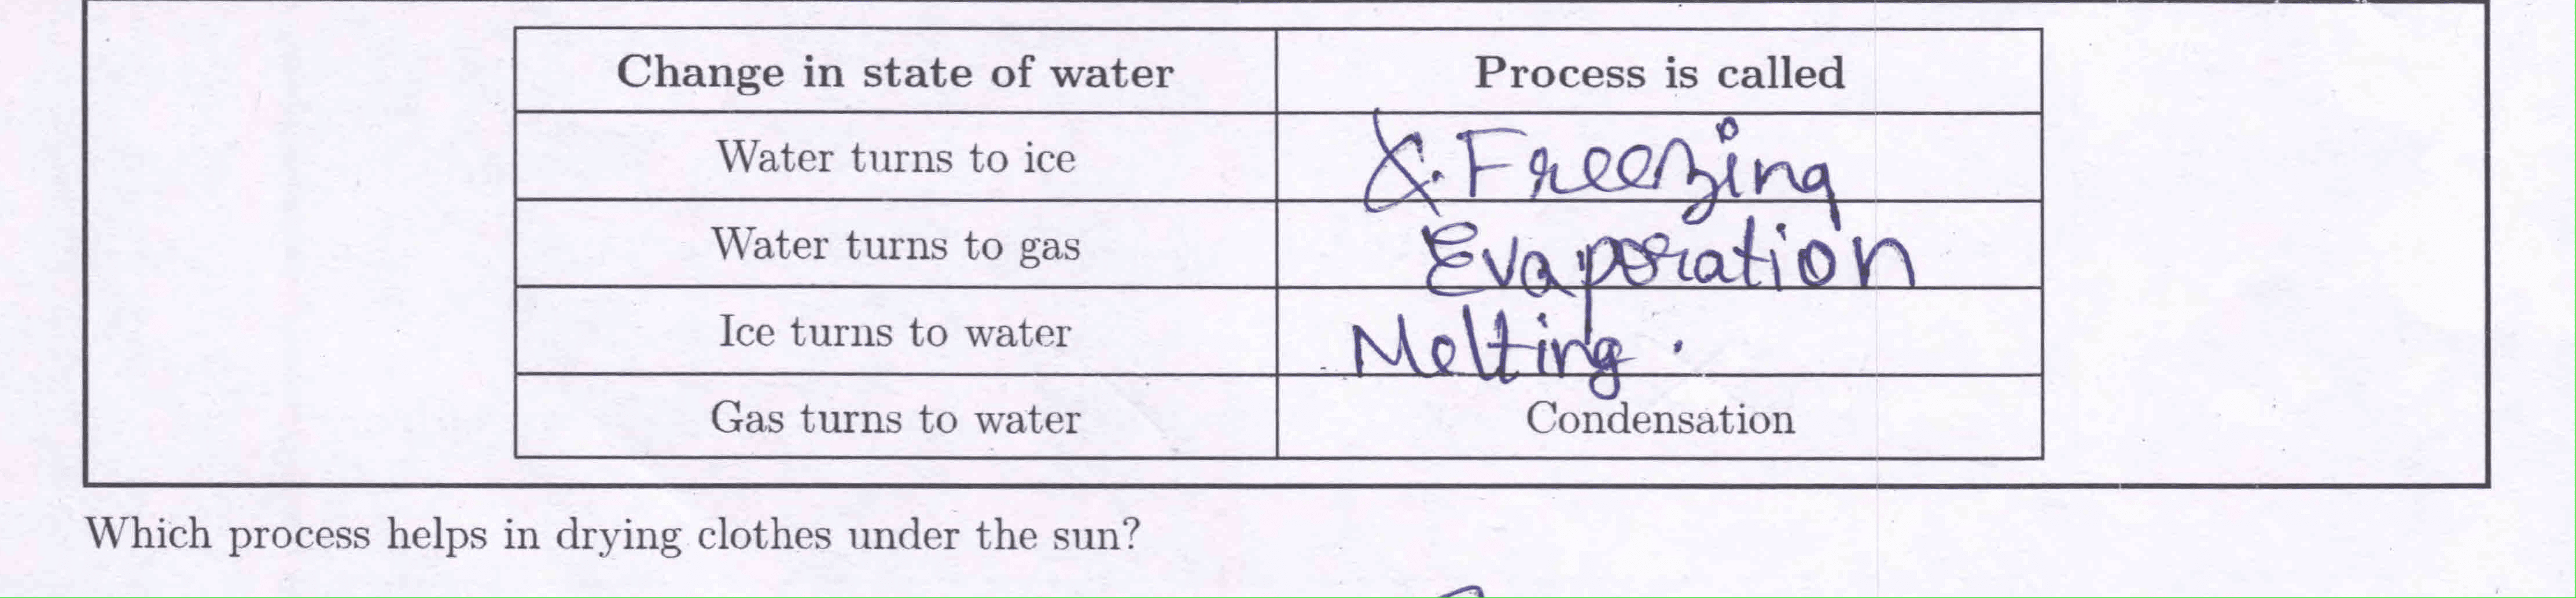 Change in state of water Process is called
Water turns to ice Freezing
Water turns to gas Evaporation
Ice turns to water Melting .
Gas turns to water Condensation
Which process helps in drying clothes under the sun?